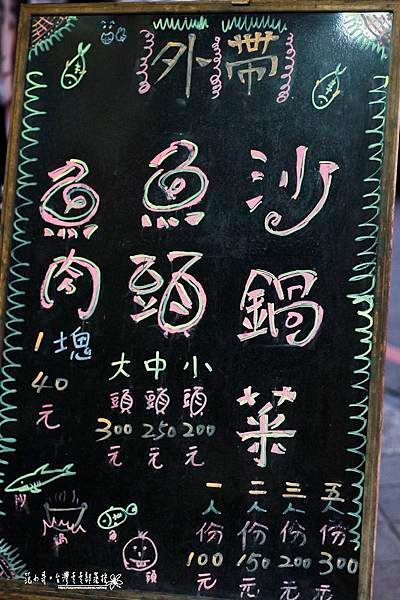 外帶
沙鍋菜
一人份100元
二人份150元
三人份200元
五人份300元
魚頭
小頭200元
中頭250元
大頭300元
魚肉
1塊40元
沙
鍋
魚
頭